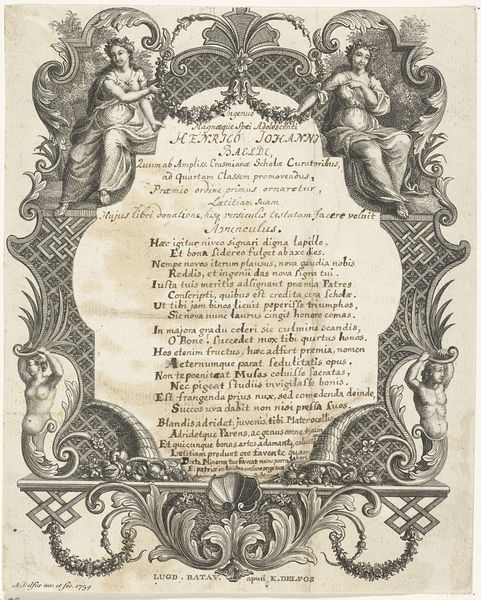 Ingenuo
Magnæque Spei Adolescenti
HENRICO IOHANNI
BAELDE,
Quum ab Ampliss. Erasmianæ Scholæ Curatoribus,
ad Quartam Classem promovendus,
Præmio ordine primus ornaretur,
Lætitiam suam
Hujus libri donatione, hisq versiculis testatam facere voluit
Avunculus.
Hæc igitur niveo signari digna lapillo,
Et bona sidereo fulget ab axe dies.
Nempe novos iterum plausus, nova gaudia nobis
Reddis, et ingenii das nova signa tui.
Iusta tuis meritis adsignant præmia Patres
Conscripti, quibus est credita cura scholæ.
Ut tibi jam binos licuit peperisse triumphos,
Sic nova nunc laurus cingit honore comas.
In majora gradu celeri sic culmina scandis,
O Bone! succedet mox tibi quartus honos.
Hos etenim fructus, hæc adfert præmia, nomen
Aeternumque parat sedulitatis opus.
Non te pœniteat Musas coluisse sacratas,
Nec pigeat studiis invigilasse bonis.
Est frangenda prius nux, sed comedenda deinde,
Succos uva dabit non nisi pressa suos.
Blandis adridet, juvenis, tibi Matercellis
Adridetque Parens, ac genus omne
Et quicunque bonas artes adamant,
Lætitiam produnt ore favente
LUGD. BATAV. apud K. DELFOS
A. Delfos inv. et fec. 1754